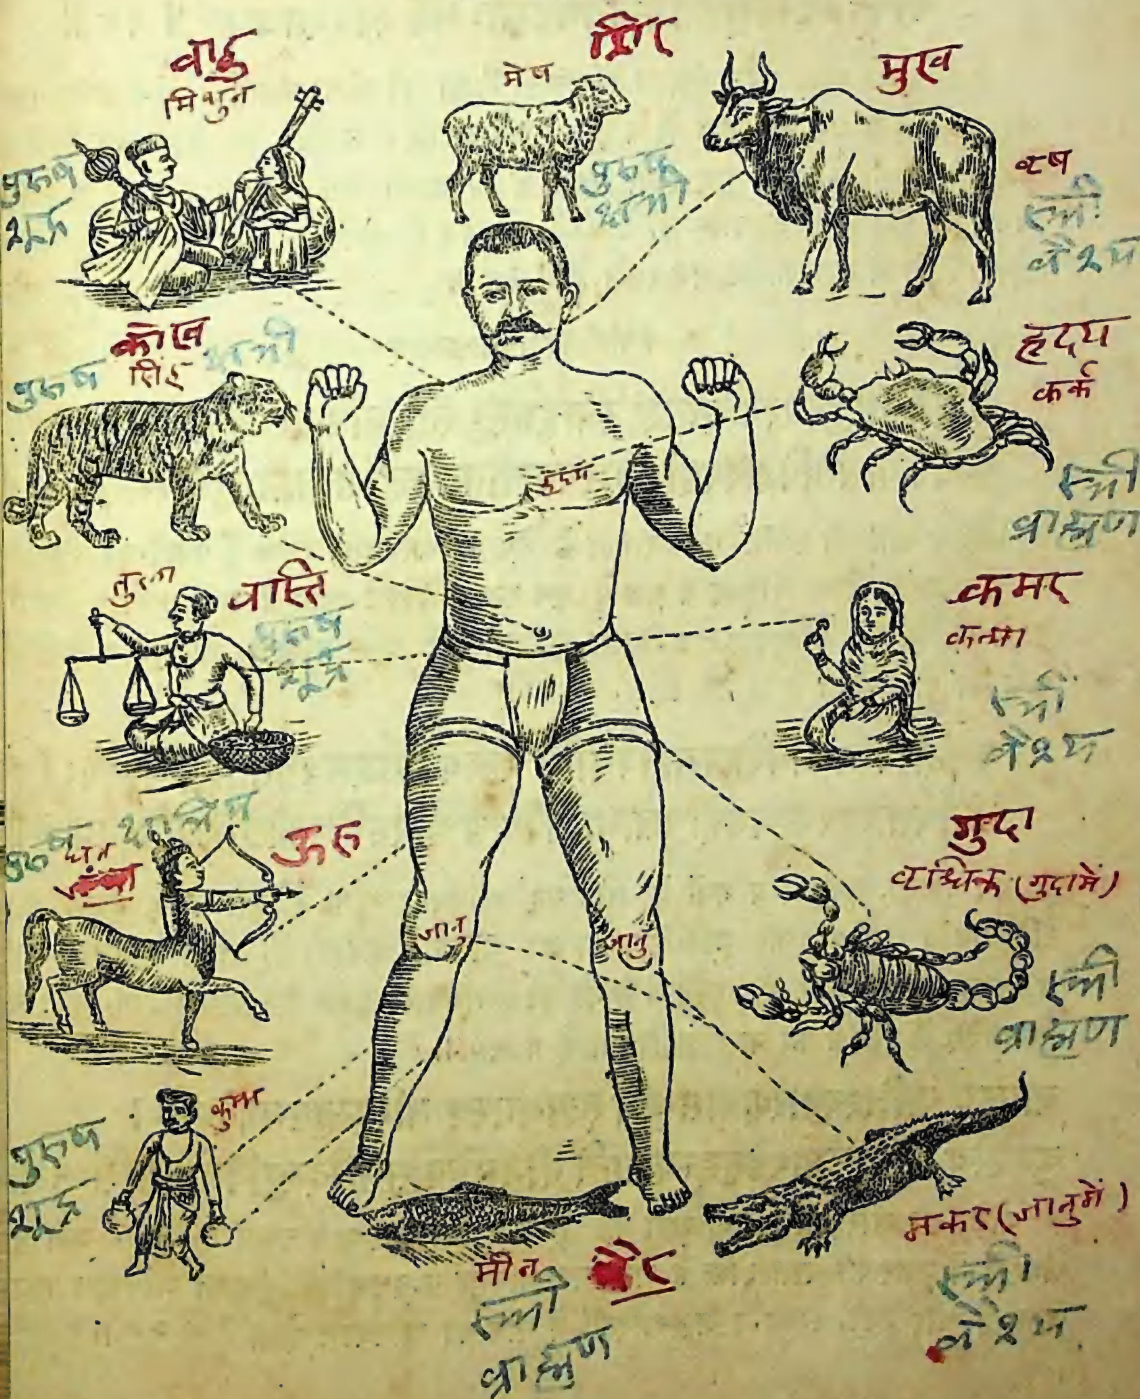 बाहु
मिथुन
पुरुष
शूद्र
शिर
मेष
पुरुष
क्षत्री
मुख
वृष
स्त्री
वैश्य
कोख
सिंह
पुरुष
क्षत्री
हृदय
कर्क
स्त्री
ब्राह्मण
हृदय
तुला
वास्ति
पुरुष
शूद्र
कमर
कन्या
स्त्री
वैश्य
पुरुष
धन
ऊरु
गुदा
वृश्चिक (गुदामें)
स्त्री
ब्राह्मण
जानु
जानु
कुम्भ
पुरुष
शूद्र
मकर (जानुमें)
स्त्री
वैश्य
मीन
पैर
स्त्री
ब्राह्मण